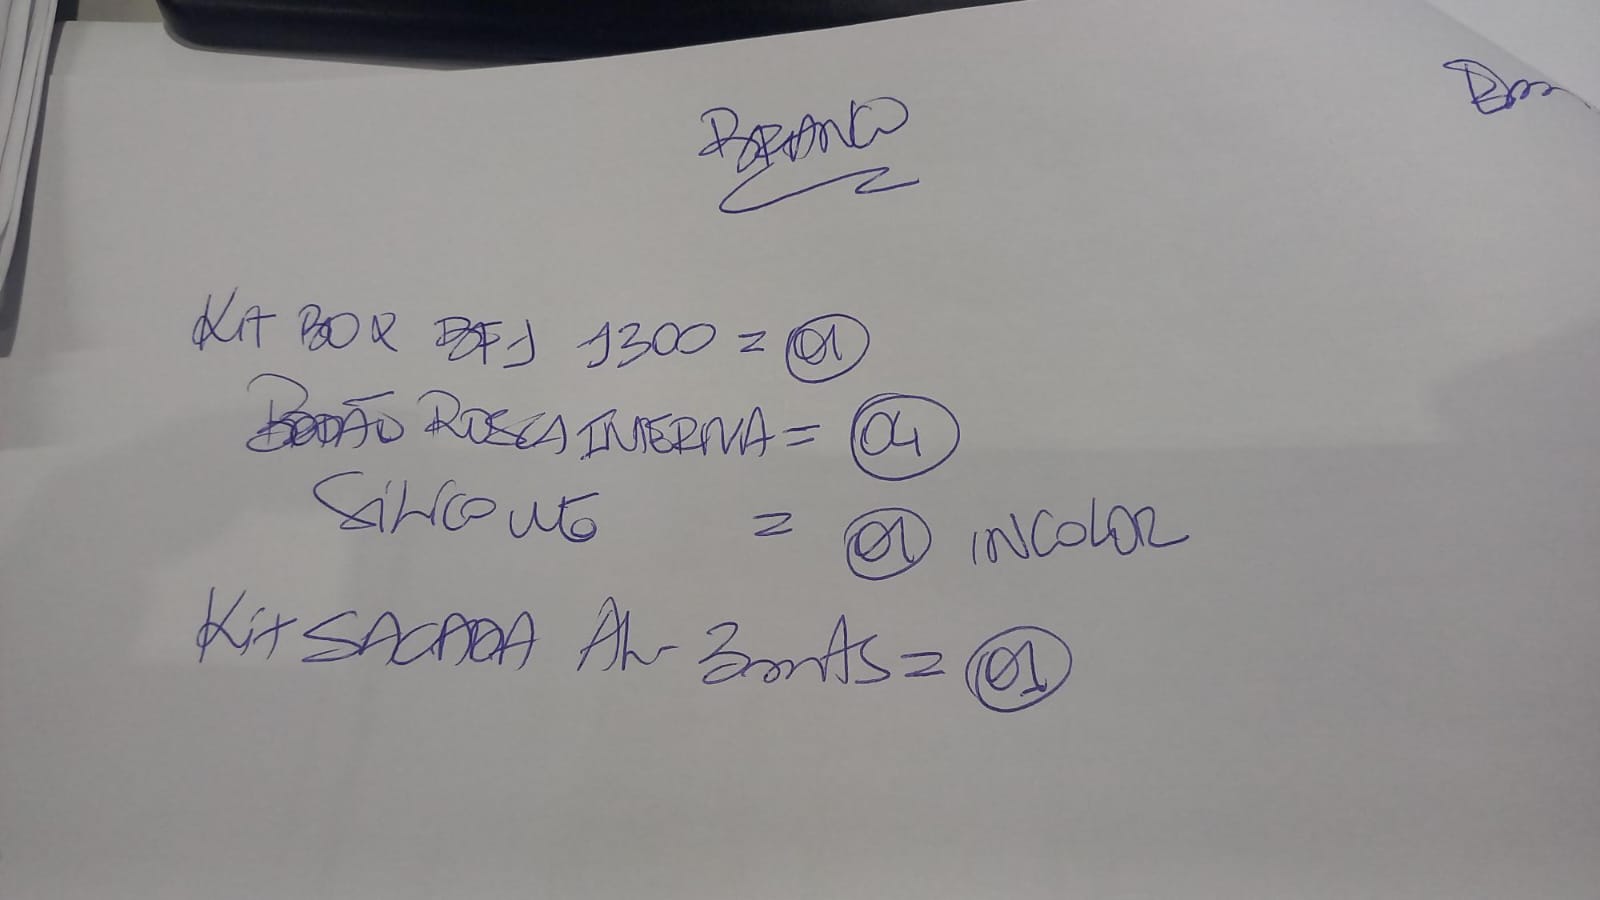 BRANCO
Kit BOX BF1 1300 = 01
BOTÃO ROSCA INTERNA = 04
SiliCONE = 01 INCOLOR
Kit SACADA AL 3mtS = 01